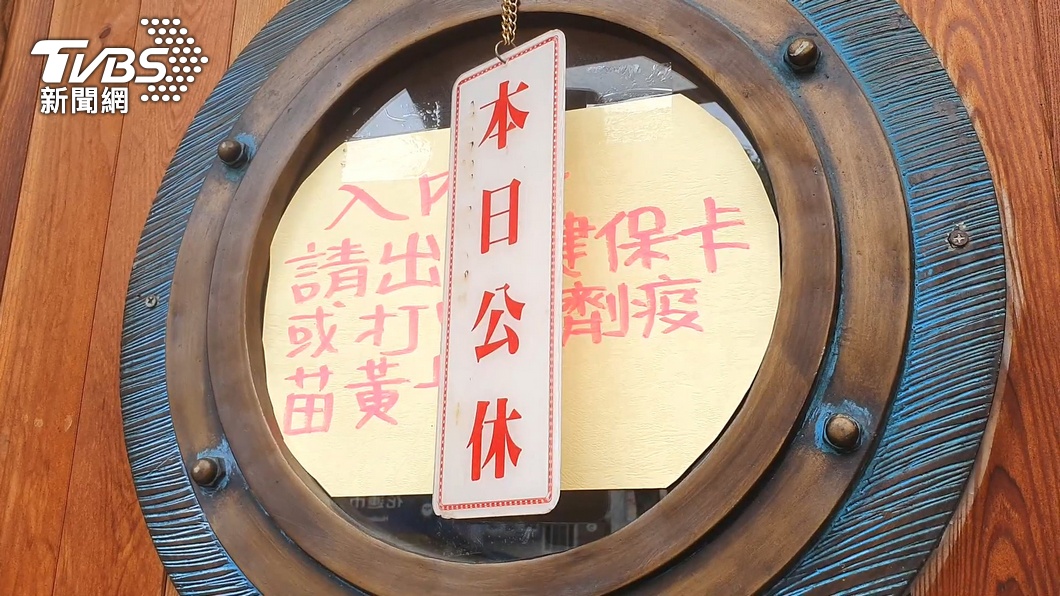 TVBS
新聞網
本日公休
入
請出 健保卡
或打 劑疫
苗黃